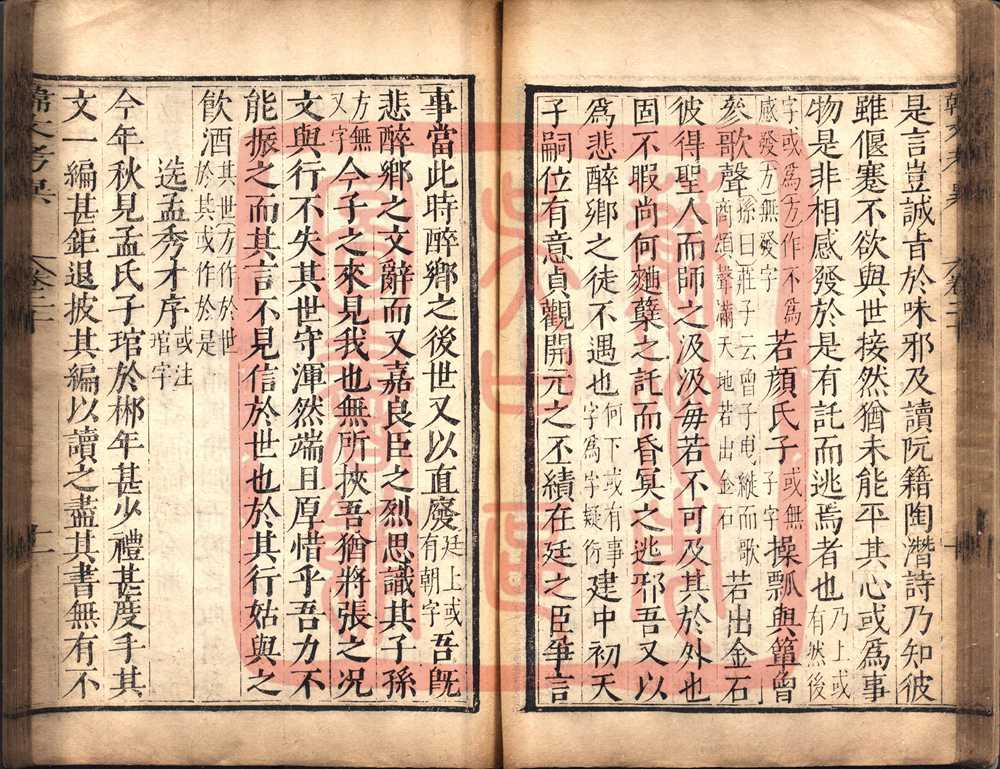 是言豈誠旨於味邪及讀阮籍陶潛詩乃知彼
雖偃蹇不欲與世接然猶未能平其心或爲事
物是非相感發於是有託而逃焉者也乃上或有然後
字或爲方作不爲感發方無發字若顏氏子或無子字操瓢與簞曾
參歌聲孫曰莊子云曾子曳縰而歌商頌聲滿天地若出金石若出金石
彼得聖人而師之汲汲每若不可及其於外也
固不暇尚何麯糵之託而昏冥之逃邪吾又以
爲悲醉鄉之徒不遇也何下或有事字爲字疑衍建中初天
子嗣位有意貞觀開元之丕績在廷之臣爭言
事當此時醉鄉之後世又以直廢廷上或有朝字吾旣
悲醉鄉之文辭而又嘉良臣之烈思識其子孫
方無又字今子之來見我也無所挾吾猶將張之况
文與行不失其世守渾然端且厚惜乎吾力不
能振之而其言不見信於世也於其行姑與之
飲酒其世方作於世於其或作於是
選孟秀才序或注琯字
今年秋見孟氏子琯於郴年甚少禮甚度手其
文一編甚鉅退披其編以讀之盡其書無有不
韓文考異 卷二十